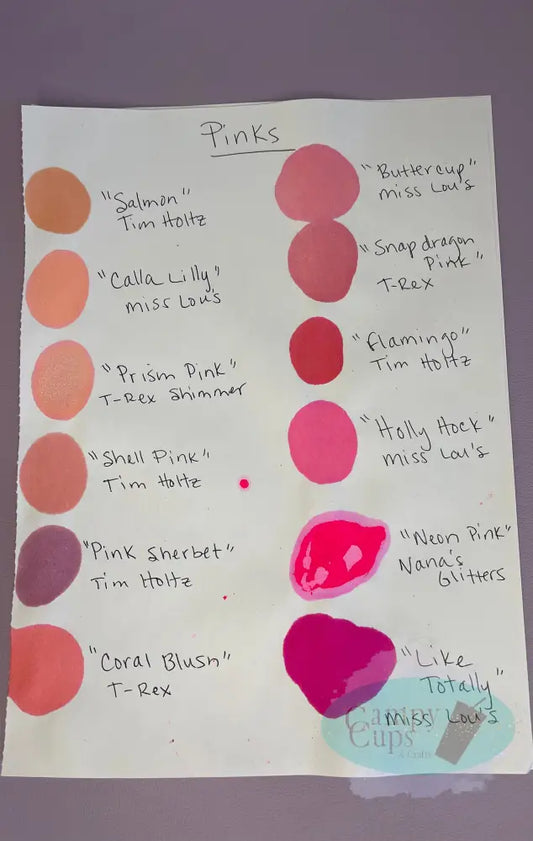 Pinks
"Salmon"
Tim Holtz
"Calla Lilly"
miss Lou's
"Prism Pink"
T-Rex Shimmer
"Shell Pink"
Tim Holtz
"Pink Sherbet"
Tim Holtz
"Coral Blush"
T-Rex
"Buttercup"
miss Lou's
"Snap dragon
Pink"
T-Rex
"Flamingo"
Tim Holtz
"Holly Hock"
miss Lou's
"Neon Pink"
Nana's
Glitters
"Like
Totally"
miss Lou's
Campy
Cups
& Crafts